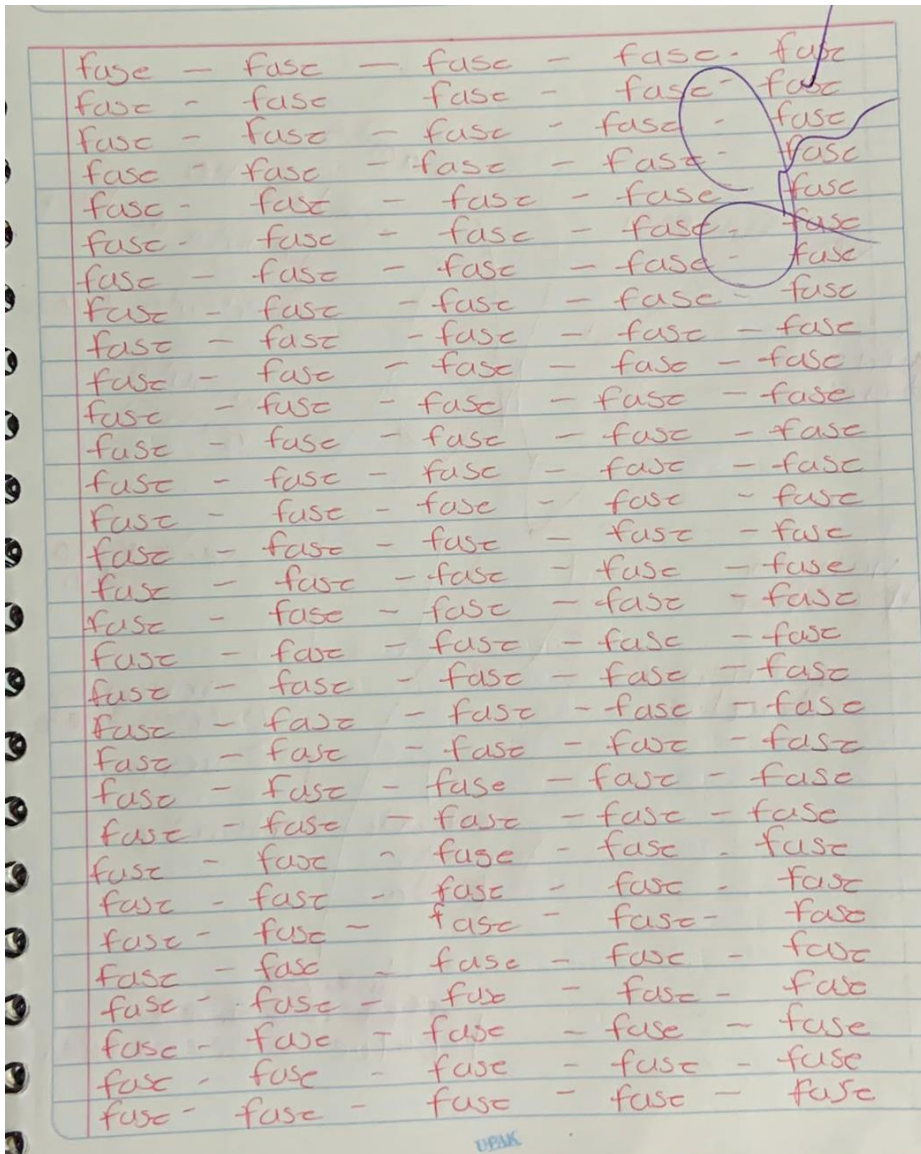 fase — fase — fase — fase - fase
fase - fase fase - fase - fase
fase - fase - fase - fase - fase
fase - fase - fase - fase - fase
fase - fase - fase - fase - fase
fase - fase - fase - fase - fase
fase - fase - fase - fase - fase
fase - fase - fase - fase - fase
fase - fase - fase - fase - fase
fase - fase - fase - fase - fase
fase - fase - fase - fase - fase
fase - fase - fase - fase - fase
fase - fase - fase - fase - fase
fase - fase - fase - fase - fase
fase - fase - fase - fase - fase
fase - fase - fase - fase - fase
fase - fase - fase - fase - fase
fase - fase - fase - fase - fase
fase - fase - fase - fase - fase
fase - fase - fase - fase - fase
fase - fase - fase - fase - fase
fase - fase - fase - fase - fase
fase - fase - fase - fase - fase
fase - fase - fase - fase - fase
fase - fase - fase - fase - fase
fase - fase - fase - fase - fase
fase - fase - fase - fase - fase
fase - fase - fase - fase - fase
fase - fase - fase - fase - fase
fase - fase - fase - fase - fase
fase - fase - fase - fase - fase
UPAK